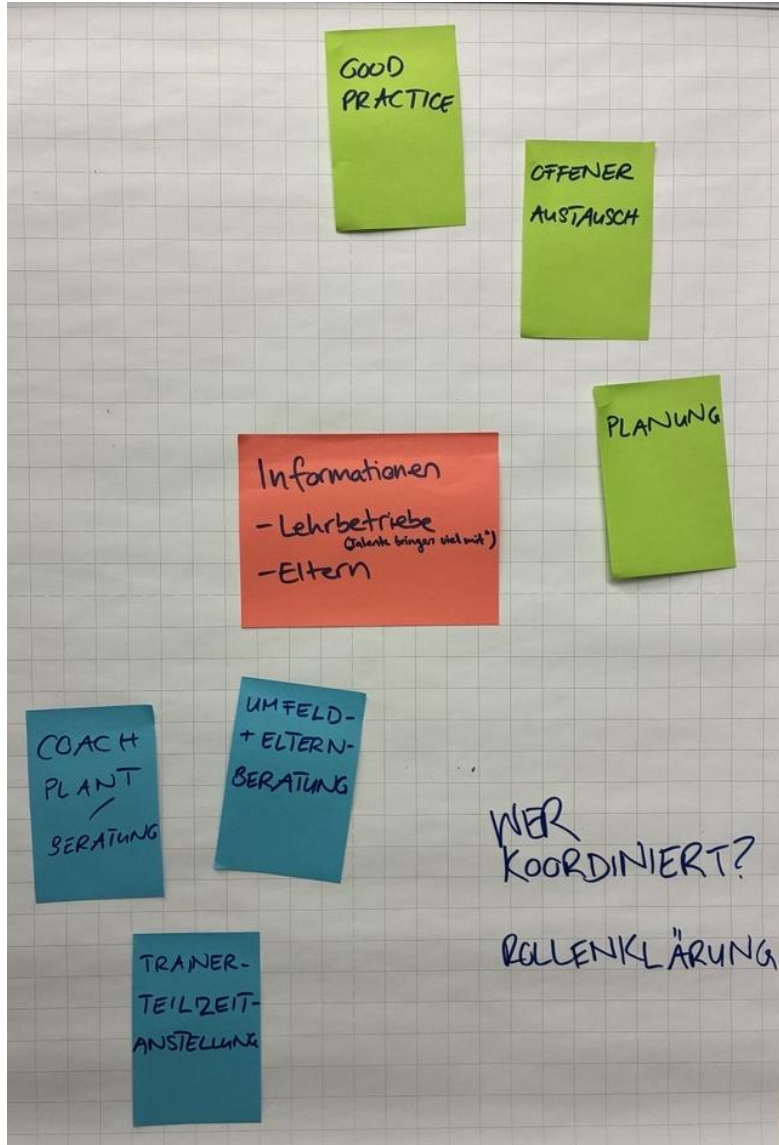 GOOD
PRACTICE
OFFENER
AUSTAUSCH
PLANUNG
Informationen
- Lehrbetriebe
(Talente bringen viel mit")
- Eltern
UMFELD-
+ ELTERN-
BERATUNG
COACH
PLANT
/
BERATUNG
TRAINER-
TEILZEIT-
ANSTELLUNG
WER
KOORDINIERT?
ROLLENKLÄRUNG